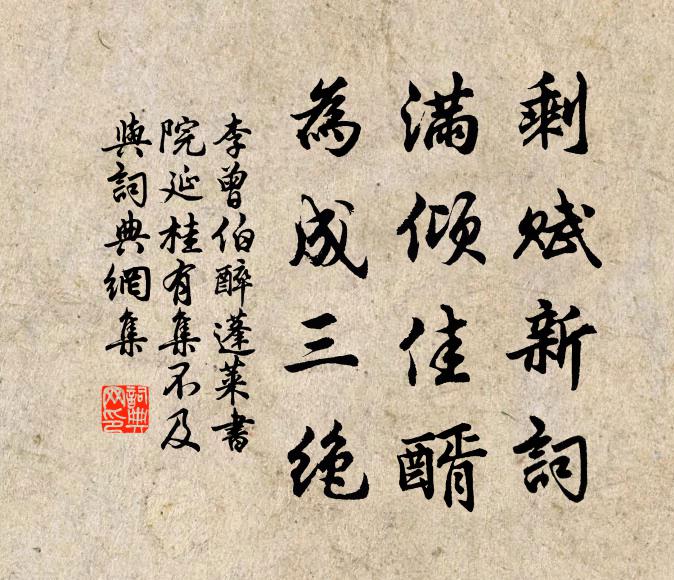 剩赋新詞
滿倾佳醑
為成三绝
李曾伯醉蓬莱書
院延桂有集不及
與詞典網集
詞典网印